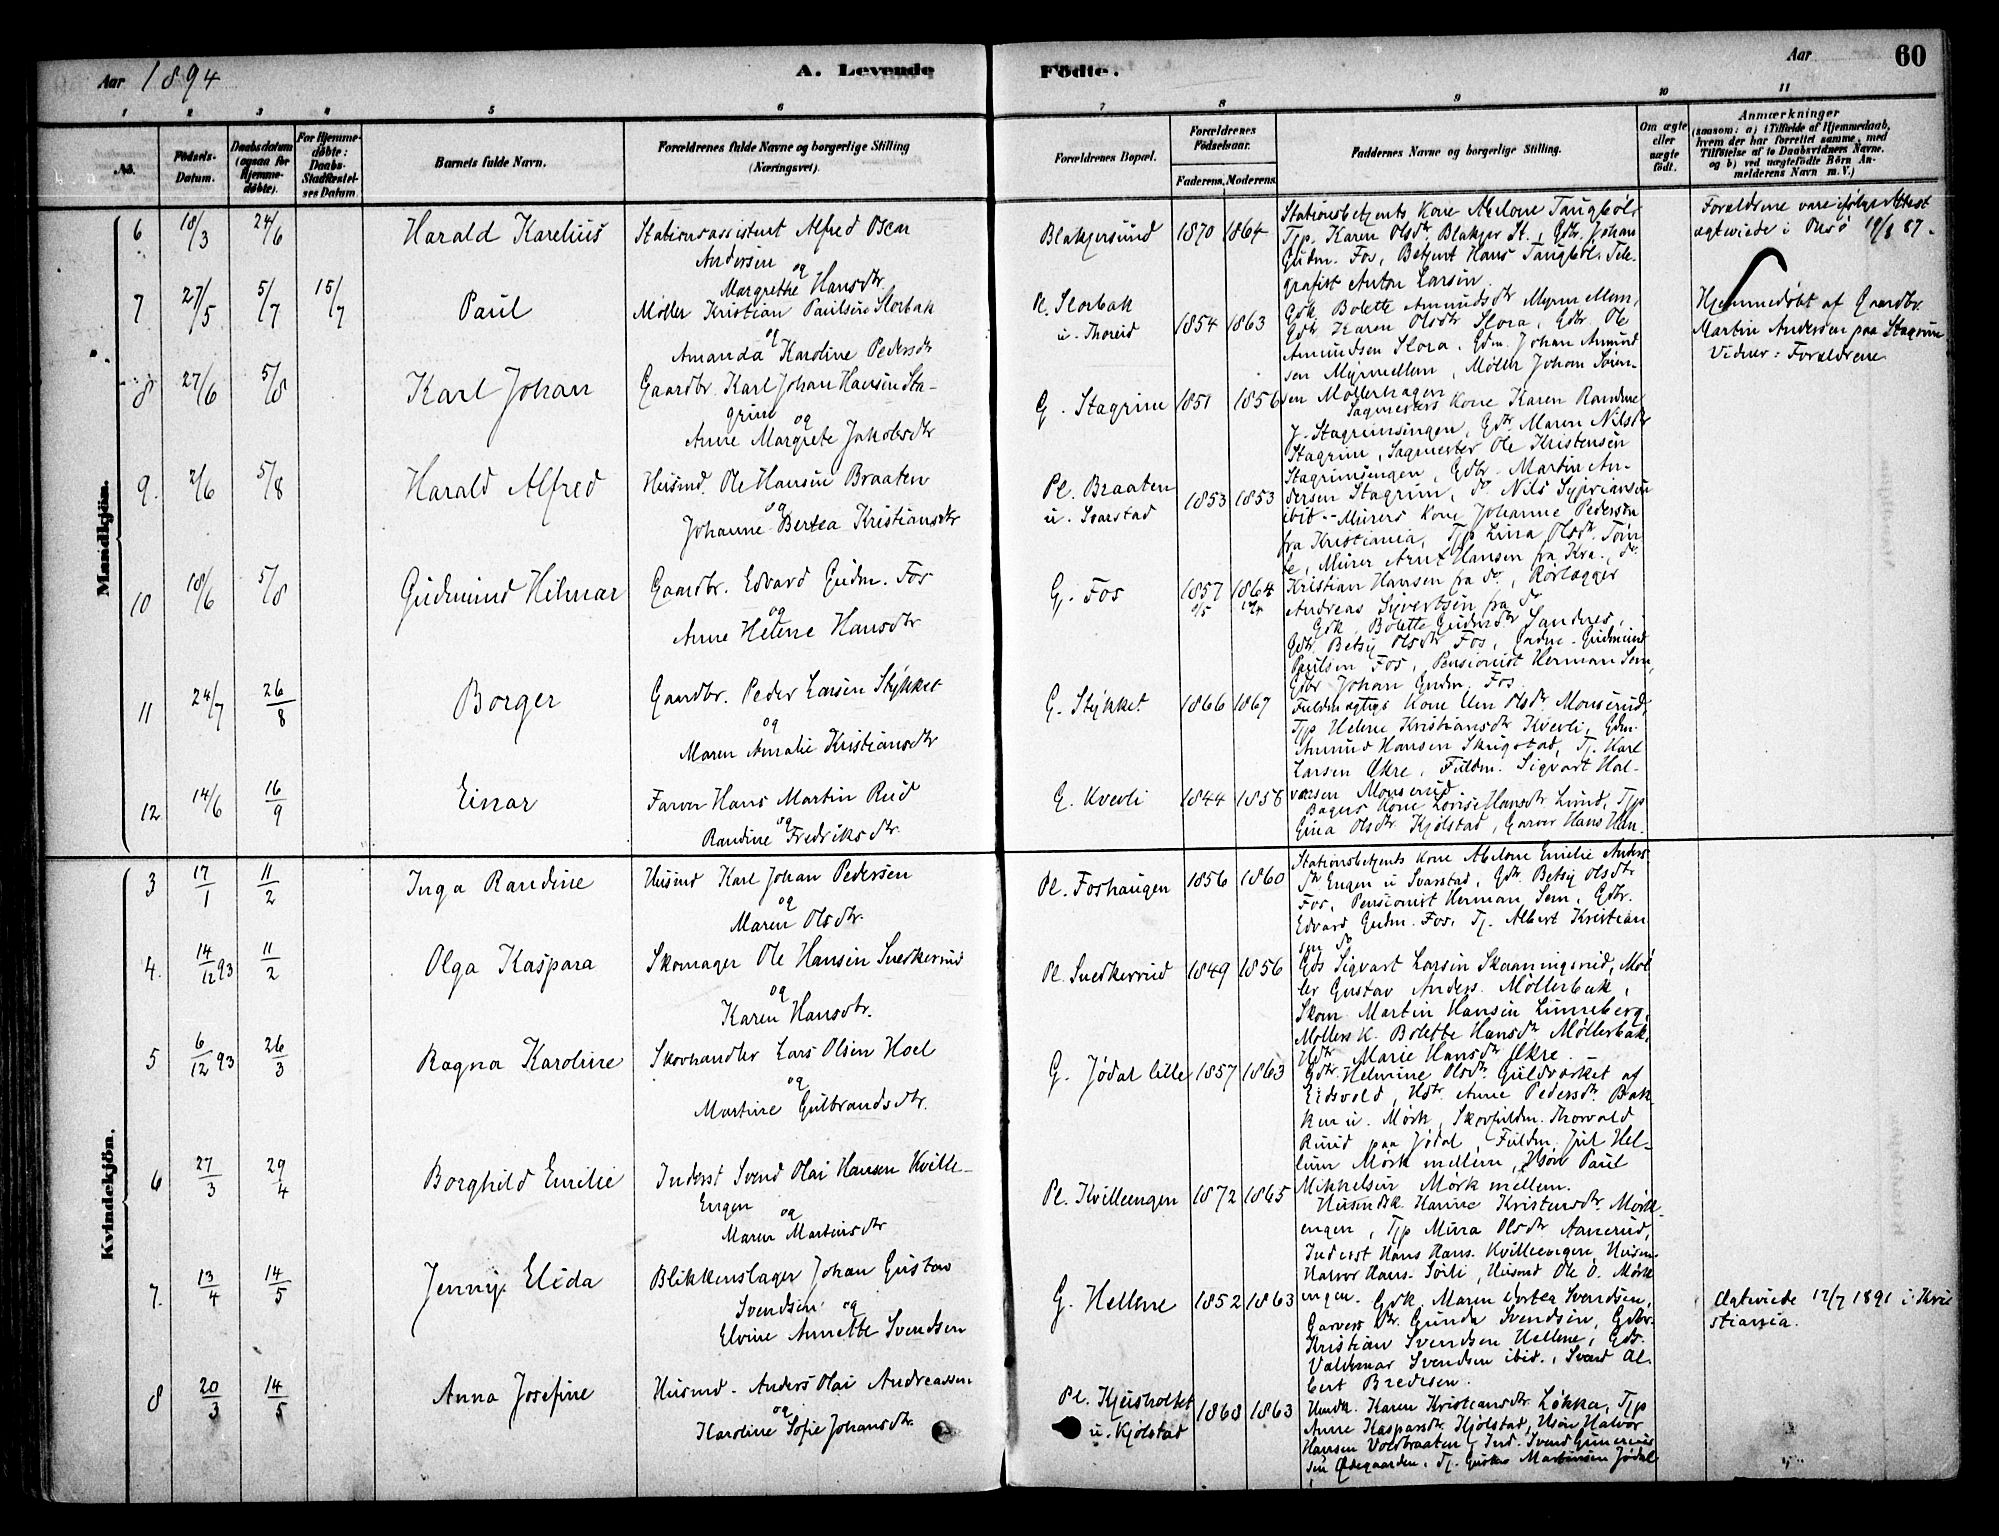 Aar 1894
A. Levende
Födte.
Aar
60
1 2 3 4 5 6 7 8 9 10 11
No.
Födsels-Datum.
Daabsdatum (ogsaa for Hjemmedøbte).
For Hjemmedøbte: Daabs-Stadfæstelses Datum
Barnets fulde Navn.
Forældrenes fulde Navne og borgerlige Stilling (Næringsvei).
Forældrenes Bopæl.
Forældrenes Födselsaar.
Faderens. Moderens.
Faddernes Navne og borgerlige Stilling.
Om ægte eller uægte født.
Anmærkninger
(saasom: a) i Tilfælde af Hjemmedaab, hvem der har forrettet samme, med Tilføielse af to Daabsvidners Navne. og b) ved uægtefödte Börn Anmelderens Navn m. V.)
Mandkjön.
6 18/3 24/6 Harald Karelius
Stationsassistent Alfred Oscar
Andersen
og
Margrethe Hansdtr
Blakjersund 1870 1864
Stationsbetjents Kone Abelone Taugbøl,
Tjp. Karen Olsdtr, Blakjer St., Gdbr. Johan
Gudm. Fos, Betjent Hans Taugbøl, Tele-
grafist Anton Larsen
Forældrene vare ifølge Attest
ægteviede i Onsö 19/8 87.
7 27/5 5/7 15/7 Paul
Møller Kristian Paulsen Slorbak
og
Amanda Karoline Pedersdtr
Pl. Slorbak
u. Thoreid
1854 1863
Gdk. Bolette Amundsdtr Myrm Mem,
Gdtr Karen Olsdtr Slora, Gdbr Ole
Amundsen Slora. Gdm. Johan Amund
sen Myrmellem, Møller Johan Sören-
sen Møllerhagen
Hjemmedøbt af Gaardbr.
Martin Andersen paa Stagrim
Vidner: Forældrene
8 27/6 5/8 Karl Johan
Gaardbr. Karl Johan Hansen Sta-
grim
og
Anne Margrete Jakobsdtr
G. Stagrim 1851 1856
Sagmesters Kone Karen Randine
J. Stagrimsengen, Gdtr. Maren Nilsdtr
Stagrim, Sagmester Ole Kristensen
Stagrimsengen, Gdbr. Martin An-
dersen Stagrim, do Nils Syprianson
ibid.
9. 2/6 5/8 Harald Alfred
Husmd. Ole Hansen Braaten
og
Johanne Bertea Kristiansdtr
Pl. Braaten
u. Svarstad
1853 1853
Murers Kone Johanne Pedersen
fra Kristiania, Tjp Lina Olsdtr. Tön
Murer Arnt Hansen fra Kra., do.
Kristian Hansen fra do, Rørlægger
Andreas Syvertsen fra do
10 18/6 5/8 Gudmund Hilmar
Gaardbr. Edvard Gudm. Fos
og
Anne Helene Hansdtr
G. Fos 1857 1864
Gdk. Bolette Gudmdtr Sandnes,
Gdtr. Betsy Olsdtr Fos, Gudmund
Paulsen Fos, Pensionist Herman Sem,
Gdbr Johan Gudm. Fos.
11 24/7 26/8 Borger
Gaardbr. Peder Larsen Stykket
og
Maren Amalie Kristiansdtr
G. Stykket 1866 1867
Fuldmægtigs Kone Elen Olsdtr. Monserud,
Tjp Helene Kristiansdtr Kvevli, Gdm.
Amund Hansen Skugstad, Tj. Karl
Larsen Økre, Fuldm. Sigvart Hal-
vorsen Monserud
12 14/6 16/9 Einar
Farver Hans Martin Rud
og
Randine Fredriksdtr.
G. Kvevli 1844 1858
Bagers Kone Lovise Hansdtr Lund, Tjp
Gina Olsdtr Kjølstad, Garver Hans Han-
Kvindekjön.
3 17/1 11/2 Inga Randine
Husmd Karl Johan Pedersen
og
Maren Olsdtr.
Pl. Foshaugen 1856 1860
Stationsbetjents Kone Abelone Emilie Anders-
dtr Engen u Svarstad, Gdtr. Betsy Olsdtr
Fos, Pensionist Herman Sem, Gdbr.
Edvard Gudm. Fos, Tj. Albert Kristian
sen do
4. 14/12 93 11/2 Olga Kaspara
Skomager Ole Hansen Snedkerrud
og
Karen Hansdtr.
Pl. Snedkerrud 1849 1856
Gds Sigvart Larsen Skaaningsrud, Møl-
ler Gustav Anders. Møllerbak,
Skom Martin Hansen Linneberg,
Møllers K. Bolette Hansdtr Møllerbak,
Hdtr. Marie Hansdtr Økre.
5 6/12 93 26/3 Ragna Karoline
Skovhandler Lars Olsen Hoel
og
Martine Gulbrandsdtr.
G. Jødal lille 1857 1863
Gdtr. Helmine Olsdtr. Guldværket af
Eidsvold, Hdtr. Anne Pedersdtr. Bak-
ken u. Mørk, Skovfuldm. Thorvald
Ruud paa Jødal, Fuldm. Jul Hel-
lum Mørk mellem, Hsøn Paul
Mikkelsen Mørk mellem.
6 27/3 29/4 Borghild Emilie
Inderst Svend Olai Hansen Kville-
Engen
og
Maren Martinsdtr
Pl. Kvilleengen 1872 1865
Husmdsk. Hanne Kristensdtr. Mørk-
engen, Tjp Mina Olsdtr Aanerud,
Inderst Hans Hans. Kvilleengen, Husm.
Halvor Hans. Sörli, Husmd Ole O. Mørk
engen.
7. 13/4 14/5 Jenny Elida
Blikkenslager Johan Gustav
Svendsen og
Elvine Annette Svendsen
G. Hellene 1852 1863
Gdk. Maren Dortea Svendsen,
Garvers Dtr. Gunda Svendsen, Gdbr.
Kristian Svendsen Hellene, Gds.
Valdemar Svendsen ibid., Svend Al-
bert Bredesen.
Ægteviede 12/7 1891 i Kri
stiania.
8 20/3 14/5 Anna Josefine
Husmd. Anders Olai Andreassen
og
Karoline Sofie Johansdtr.
Pl. Kjeisholtet
u. Kjølstad
1868 1863
Husmdk. Karen Kristiansdtr Løkka, Tjp
Anne Kaspersdtr Kjølstad, Hsøn Halvor
Hansen Voldbraaten, Ind. Svend Gunerius
sen Ødegaarden, Tj. Gustav Martinsen Jødal